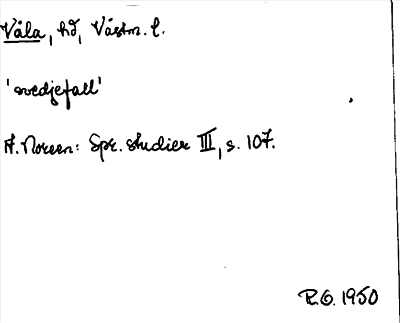 Våla, hd, Västm. l.
'svedjefall'
A. Noreen: Spr. studier III, s. 107.
R.G. 1950